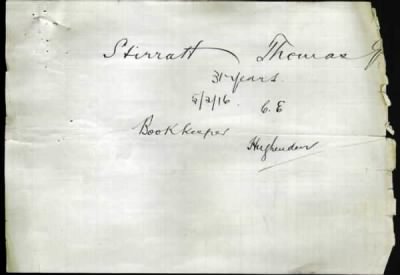 Stirratt Thomas
31 years.
9/2/16 C.E
Bookkeeper
Hughenden